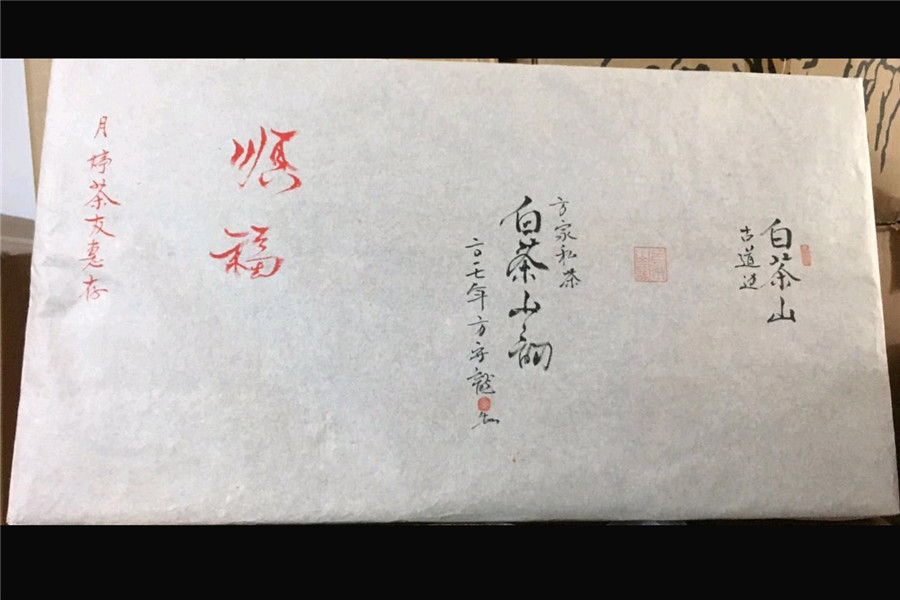 白茶山
古道边
方家私茶
白茶山韵
二〇一七年方守龍
顺福
月婷茶友惠存